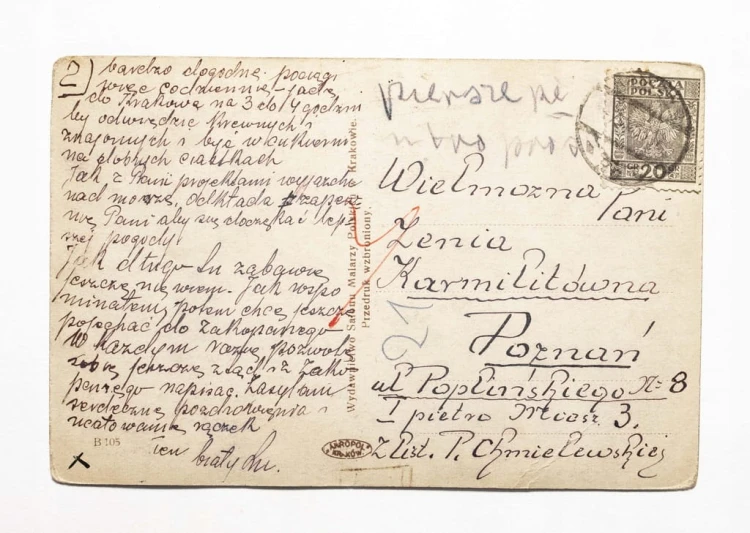 2) bardzo dogodne pociągi
więc codziennie jadę
do Krakowa na 3 do 4 godzin
by odwiedzić krewnych i
znajomych i być w cukierni
na dobrych ciastkach
Jak z Pani projektami wyjazdu
nad morze, odkłada zapew
nie Pani aby się doczekać lep
szej pogody.
Jak długo tu zabawię
jeszcze nie wiem. Jak wspo
minałem potem chcę jeszcze
popędzić do Zakopanego
W każdym razie pozwolę
sobie jeszcze stąd i z Zako
panego napisać. Zasyłam
serdeczne pozdrowienia i
ucałowania rączek
B 105
Wydawnictwo Salonu Malarzy Polskich Krakowie.
Przedruk wzbroniony.
AKROPOL
KRAKÓW
POCZTA
POLSKA
GR 20 GR
pierwsze
Wielmożna Pani
Zenia
Karmilitówna
Poznań
ul Poplińskiego № 8
I piętro Miesz. 3.
z list. P. Chmielewskiej
21